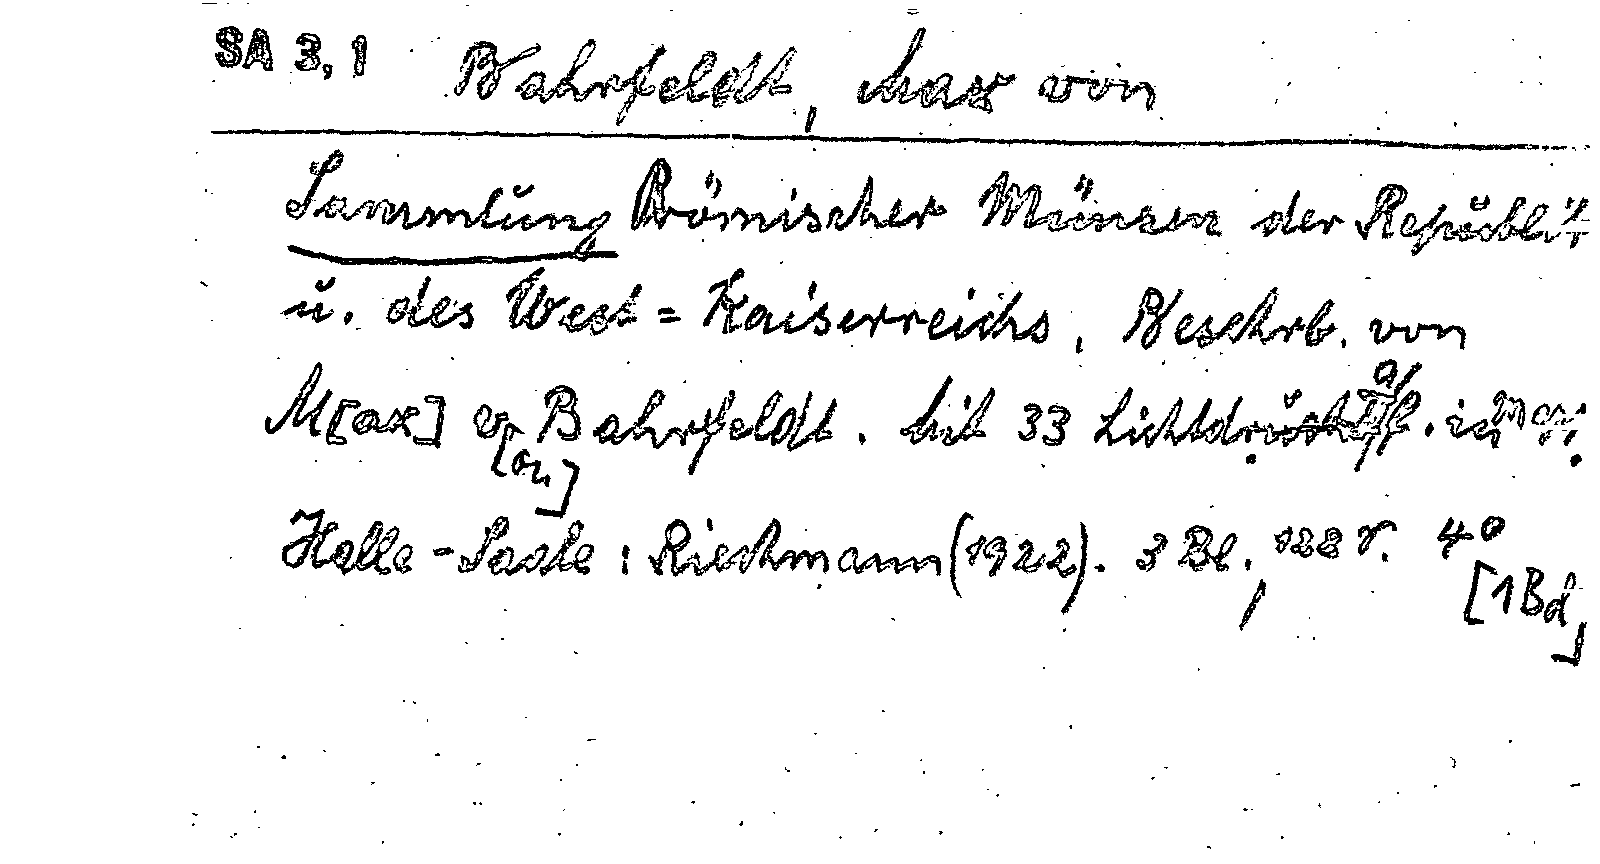 SA 3,1 Bahrfeldt, Max von
Sammlung Römischer Münzen der Republik
u. des West=Kaiserreichs, Beschrb. von
M[ax] v[on] Bahrfeldt. Mit 33 Lichtdr.
Halle-Saale: Riechmann (1922). 3 Bl., 128 S. 4°
[1 Bd]